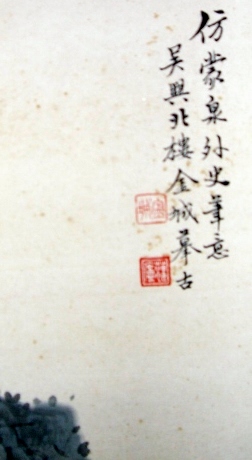 仿蒙泉外史筆意
吴興北樓金城摹古